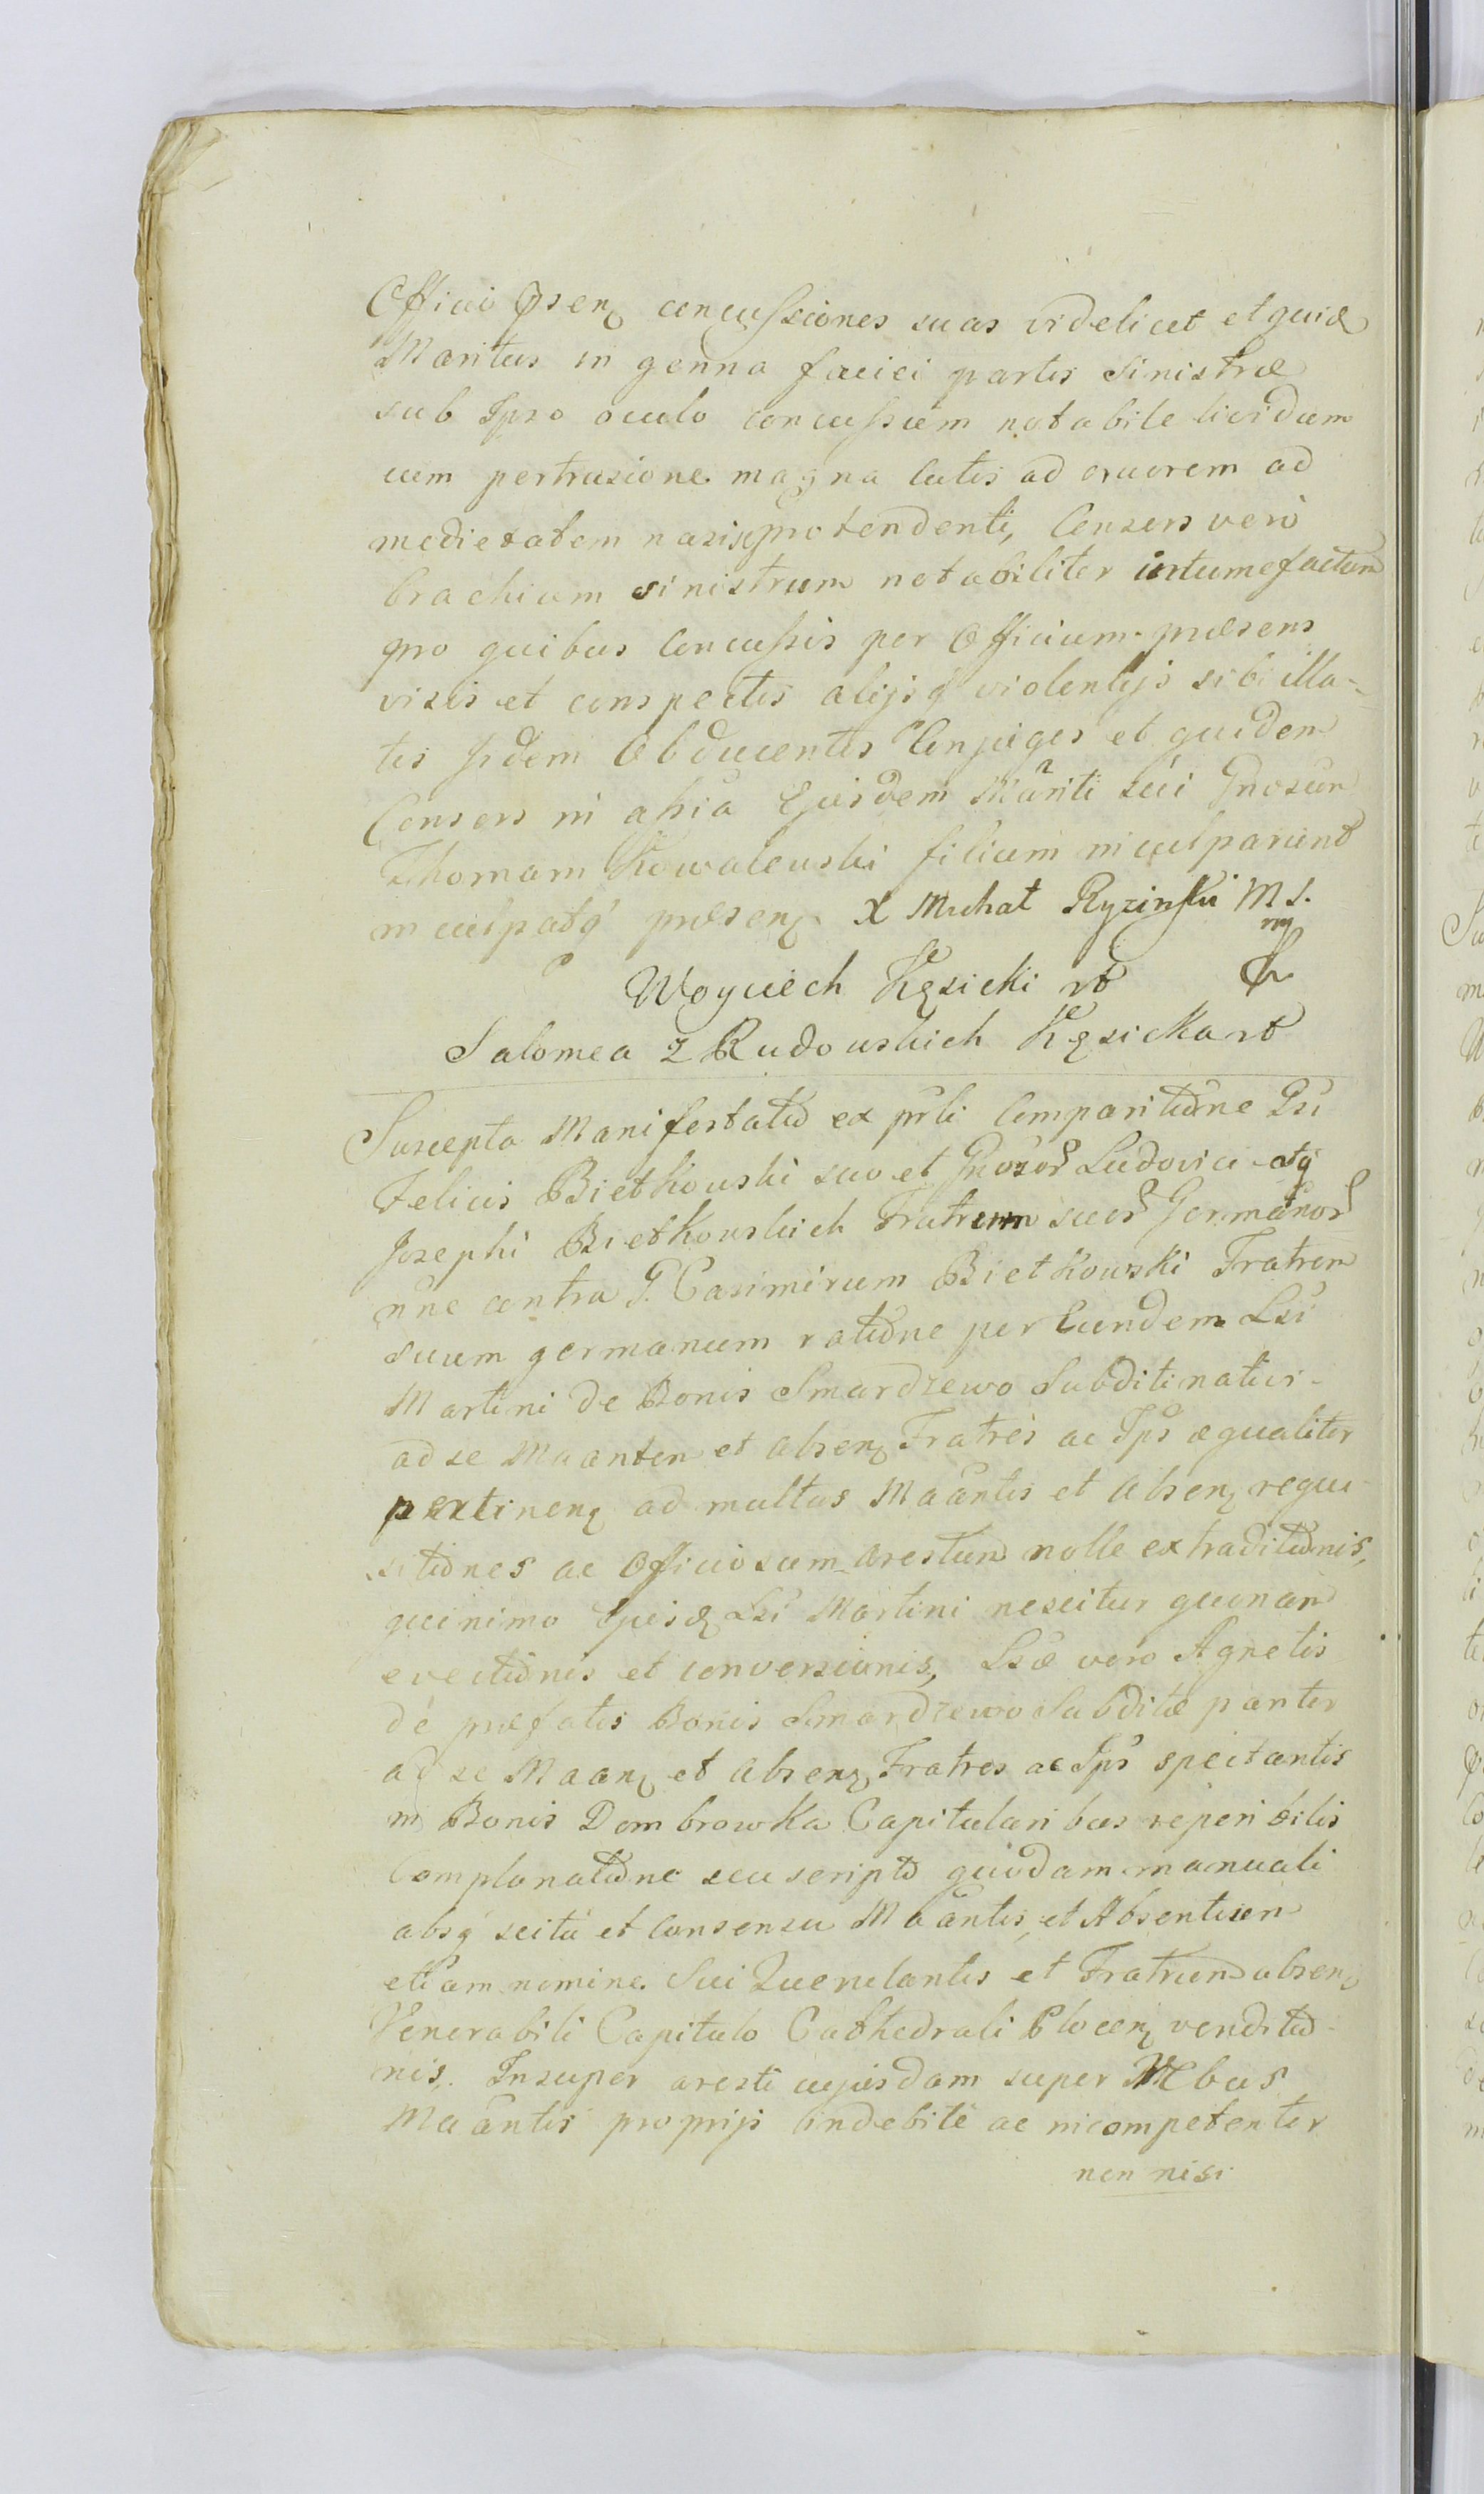 Officio Psenz concussiones suas videlicet et quid
Maritus in genna faciei partis sinistræ
sub Ipso oculo concussum notabile lividum
cum pertrusione magna cutis ad cruorem ad
medietatem nasi protendenti, Consors verò
brachium sinistrum notabiliter intumefactum
pro quibus Concussis per Officium præsens
visis et conspectis alijsq violentijs sibi illa-
tis ijdem Obducentes Conjuges et quidem
Consors in assia Ejusdem Mariti sui Gnosum
Thomam Kowalewski filium inculparunt
inculpatq præsenz X Michał Ryzinski M S.
mp
Woyciech Kęsicki rb
Salomea z Rudowskich Kęsicka rb
Suscepta Manifestatio ex prli Comparitione Gsi
Felicis Bietkowski suo et Gnosor Ludovici atq
Josephi Bietkowskich Fratrum suor Germanor
nne contra G. Casimirum Bietkowski Fratrem
suum germanum ratione per Eundem Lsi
Martini de Bonis Smardzewo Subditi natur-
ad se Maanten et absenz Fratres ac Ips æqualiter
pertinenz ad multas Maantis et Absenz requi-
sitiones ac Officiosum arestum nolle extraditionis,
quinimo Ejusd Lsi Martini nescitur quonam
evectionis et conversionis, Lsæ vero Agnetis
de præfatis Bonis Smardzewo Subditæ pariter
ad se Maanz et Absenz Fratres ac Ips spectantis
in Bonis Dombrowka Capitularibus reperibilis
Complanatione seu scripto quodam manuali
absq scitu et Consensu Maantis, et Absentium
etiam nomine Sui Querulantis et Fratrum absenz
Venerabili Capitulo Cathedrali Plocenz venditio-
nis. Insuper aresti cujusdam super Rebus
Maantis proprijs indebitè ac incompetenter
non nisi